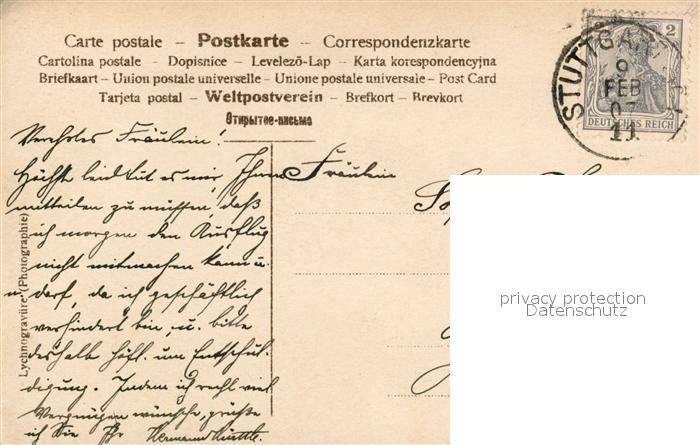 Carte postale – Postkarte – Correspondenzkarte
Cartolina postale – Dopisnice – Levelező-Lap – Karta korespondencyjna
Briefkaart – Union postale universelle – Unione postale universale – Post Card
Tarjeta postal – Weltpostverein – Brefkort – Brevkort
Открытое-письмо
2
STUTTGART
9
FEB
07
11
DEUTSCHES REICH
Verehrtes Fräulein!
Höchst leid tut es mir, Ihnen
mitteilen zu müssen, daß
ich morgen den Ausflug
nicht mitmachen kann u.
u. darf, da ich geschäftlich
verhindert bin, u. bitte
deshalb höfl. um Entschul-
digung. Indem ich recht viel
Vergnügen wünsche, grüße
ich Sie Ihr Hermann
Fräulein
Lychnogravüre (Photographie)
privacy protection
Datenschutz